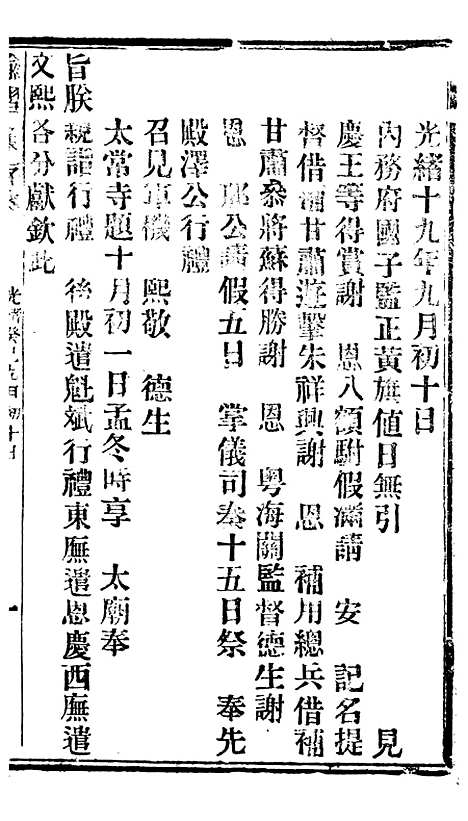 光緒十九年九月初十日
內務府國子監正黃旗値日無引　見
慶王等得賞謝　恩八額駙假滿請　安　記名提
督借補甘肅遊擊朱祥興謝　恩　補用總兵借補
甘肅叅將蘇得勝謝　恩　粤海關監督德生謝
恩　那公請假五日　掌儀司奏十五日祭　奉先
殿澤公行禮
召見軍機　熙敬　德生
太常寺題十月初一日孟冬時享　太廟奉
旨朕親詣行禮　後殿遣魁斌行禮東廡遣恩慶西廡遣
文熙各分獻欽此
光緒癸巳九月初十日
一